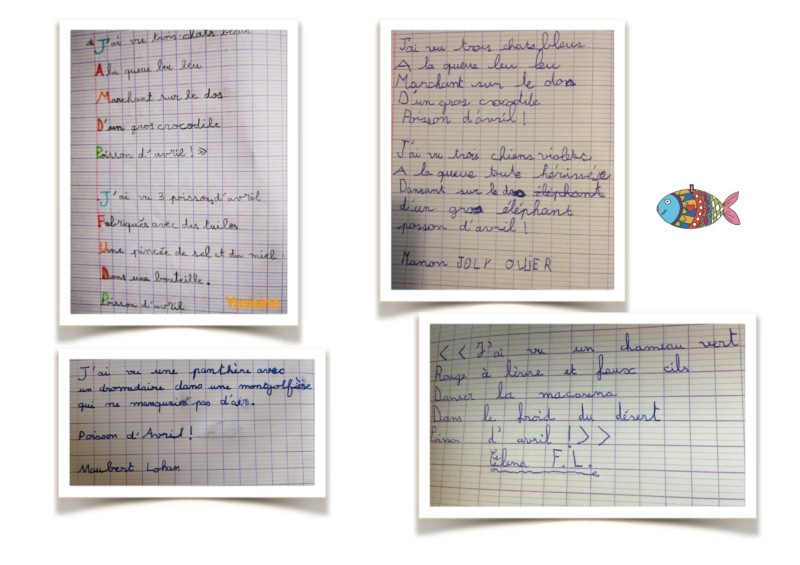 « J'ai vu trois chats bleus
A la queue leu leu
Marchant sur le dos
D'un gros crocodile
Poisson d'avril ! »
J'ai vu 3 poissons d'avril
Fabriqués avec des tuiles
Une pincée de sel et du miel
Dans une bouteille.
Poisson d'avril
Yassine
J'ai vu trois chats bleus
A la queue leu leu
Marchant sur le dos
D'un gros crocodile
Poisson d'avril !
J'ai vu trois chiens violets
A la queue toute hérissée
Dansant sur le dos éléphant
d'un gros éléphant
poisson d'avril !
Manon JOLY OLIER
J'ai vu une panthère avec
un dromadaire dans une montgolfière
qui ne manquait pas d'airs.
Poisson d'Avril !
Maubert Lohan
<< J'ai vu un chameau vert
Rouge à lèvre et faux cils
Danser la macarena
Dans le froid du désert
Poisson d'avril ! >>
Elena F.L.